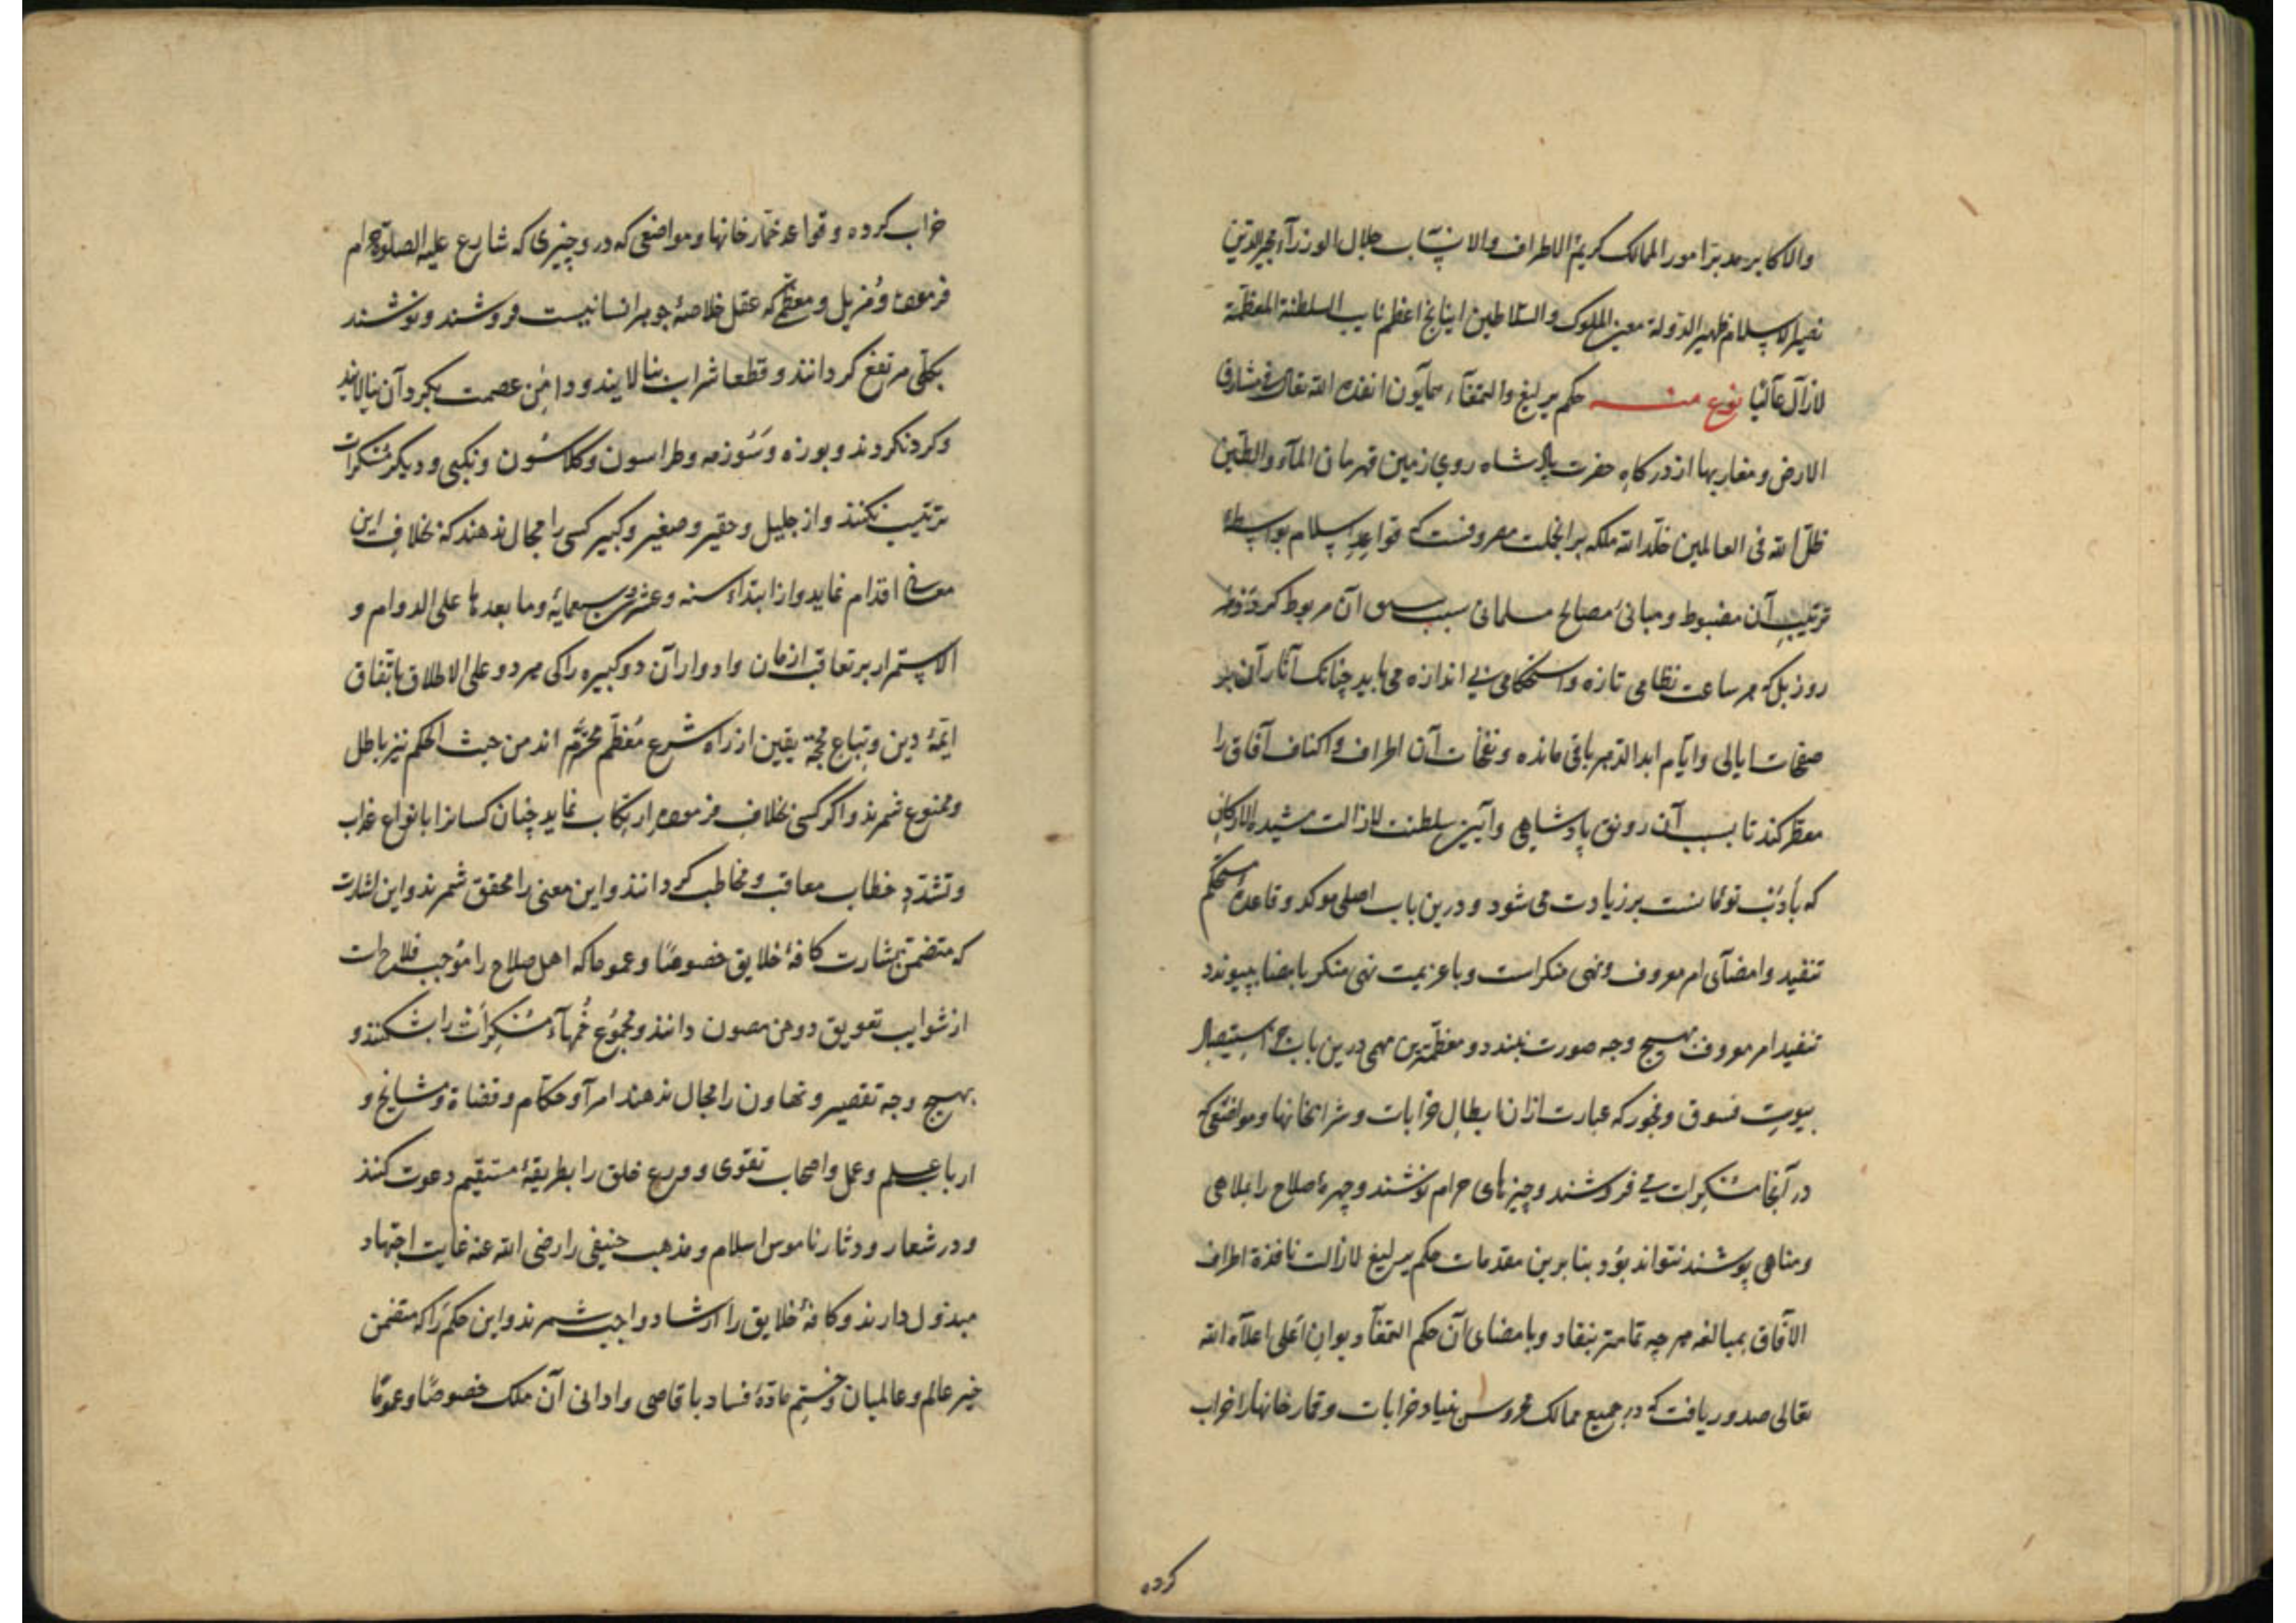 والاکابر مدبر امور الممالک کریم الاطراف والانتساب جلال الوزرآء مجیرالدین
نصیرالاسلام ظهیرالدوله معین الملوک والسلاطین اینانج اعظم نایب السلطنة المعظمة
لازال عالیا نوع منه حکم یرلیغ والتمغآء همآیون انفذه الله تعالی فی مشارق
الارض ومغاربها از درکاه حضرت پادشاه روی زمین قهرمان المآء والطین
ظل الله فی العالمین خلد الله ملکه بر انجلت مصروفست که قواعد اسلام بواسطه
ترتیب آن مضبوط و مبانی مصالح مسلمانی سبب آن مربوط کردد و هر
روز بل که هر ساعت نظامی تازه واستحکامی بی اندازه می یابد چنانک آثار آن بر
صفحات ایالی وایام ابد الدهر باقی مانده ونفحات آن اطراف واکناف آفاق را
معطر کند تا بسبب آن رونق پادشاهی وآیین سلطنت لازالت مشیده الارکان
که با دین توامانست بر زیادت می شود و درین باب اصلی موکد و قاعدهٔ مستحکم
تنفید وامضآی امر معروف ونهی منکر است وبا عزیمت نهی منکر بامضا نپیوندد
تنفید امر معروف بهیچ وجه صورت نبندد و معظمترین مهمی درین باب جز استیصال
بیوت فسوق وفجور که عبارت ازان ابطال خرابات و شرابخانها ومواضعی که
در آنجا مسکرات می فروشند وچیزهای حرام نوشند وچهرهٔ صلاح را بملاهی
ومناهی پوشند نتواند بود بنا برین مقدمات حکم یرلیغ لازالت نافذة اطراف
الآفاق بمبالغه هر چه تمامتر بنفاد وبامضای آن حکم التمغآ دیوان اعلی اعلآه الله
تعالی صدور یافت که در جمیع ممالک محروسه بنیاد خرابات وقمارخانها را خراب
کرده
خراب کرده و قواعد خمارخانها ومواضعی که درو چیزی که شارع علیه الصلوة حرام
فرموده ومزیل ومعظم که عقل خلاصهٔ جوهر انسانیست فروشند ونوشند
بکلی مرتفع کردانند و قطعا شراب بنالایند ودامن عصمت بکرد آن نیالایند
وکرد نکردند و بوزه وسوزمه وطراسون وکلاسون ونکبی ودیکر مسکرات
ترتیب نکنند واز جلیل وحقیر وصغیر وکبیر کسی را مجال ندهند که بخلاف این
معانی اقدام نماید واز ابتداء سنه وعشرین سبعمایه وما بعدها علی الدوام و
الاستمرار بر تعاقب ازمان وادوار آن دو کبیره را کی هر دو علی الاطلاق باتفاق
ایمهٔ دین وتباع محجهٔ یقین از راه شرع معظم محرم اند من حیث الحکم نیز باطل
وممنوع شمرند واکر کسی بخلاف فرموده ارتکاب نماید چنان کسانرا بانواع عذاب
وتشدد خطاب معاقب ومخاطب کردانند واین معنی را محقق شمرند واین اشارت
که متضمن بشارت کافهٔ خلایق خصوصا وعموما که اهل صلاح را موجب فلاح است
از شوایب تعویق دوهن مصون دانند ومجموع خمهآء مسکرات را بشکنند و
بهیچ وجه تقصیر وتهاون را مجال ندهند امرآ وحکام وقضاة ومشایخ و
ارباب علم وعمل واصحاب تقوی وورع خلق را بطریقهٔ مستقیم دعوت کنند
ودر شعار ودثار ناموس اسلام ومذهب حنیفی را رضی الله عنه غایت اجتهاد
مبذول دارند وکافهٔ خلایق را ارشاد واجب شمرند واین حکم را که متضمن
خیر عالم وعالمیان وختم مادهٔ فساد باقاصی وادانی آن ملک خصوصا وعموما